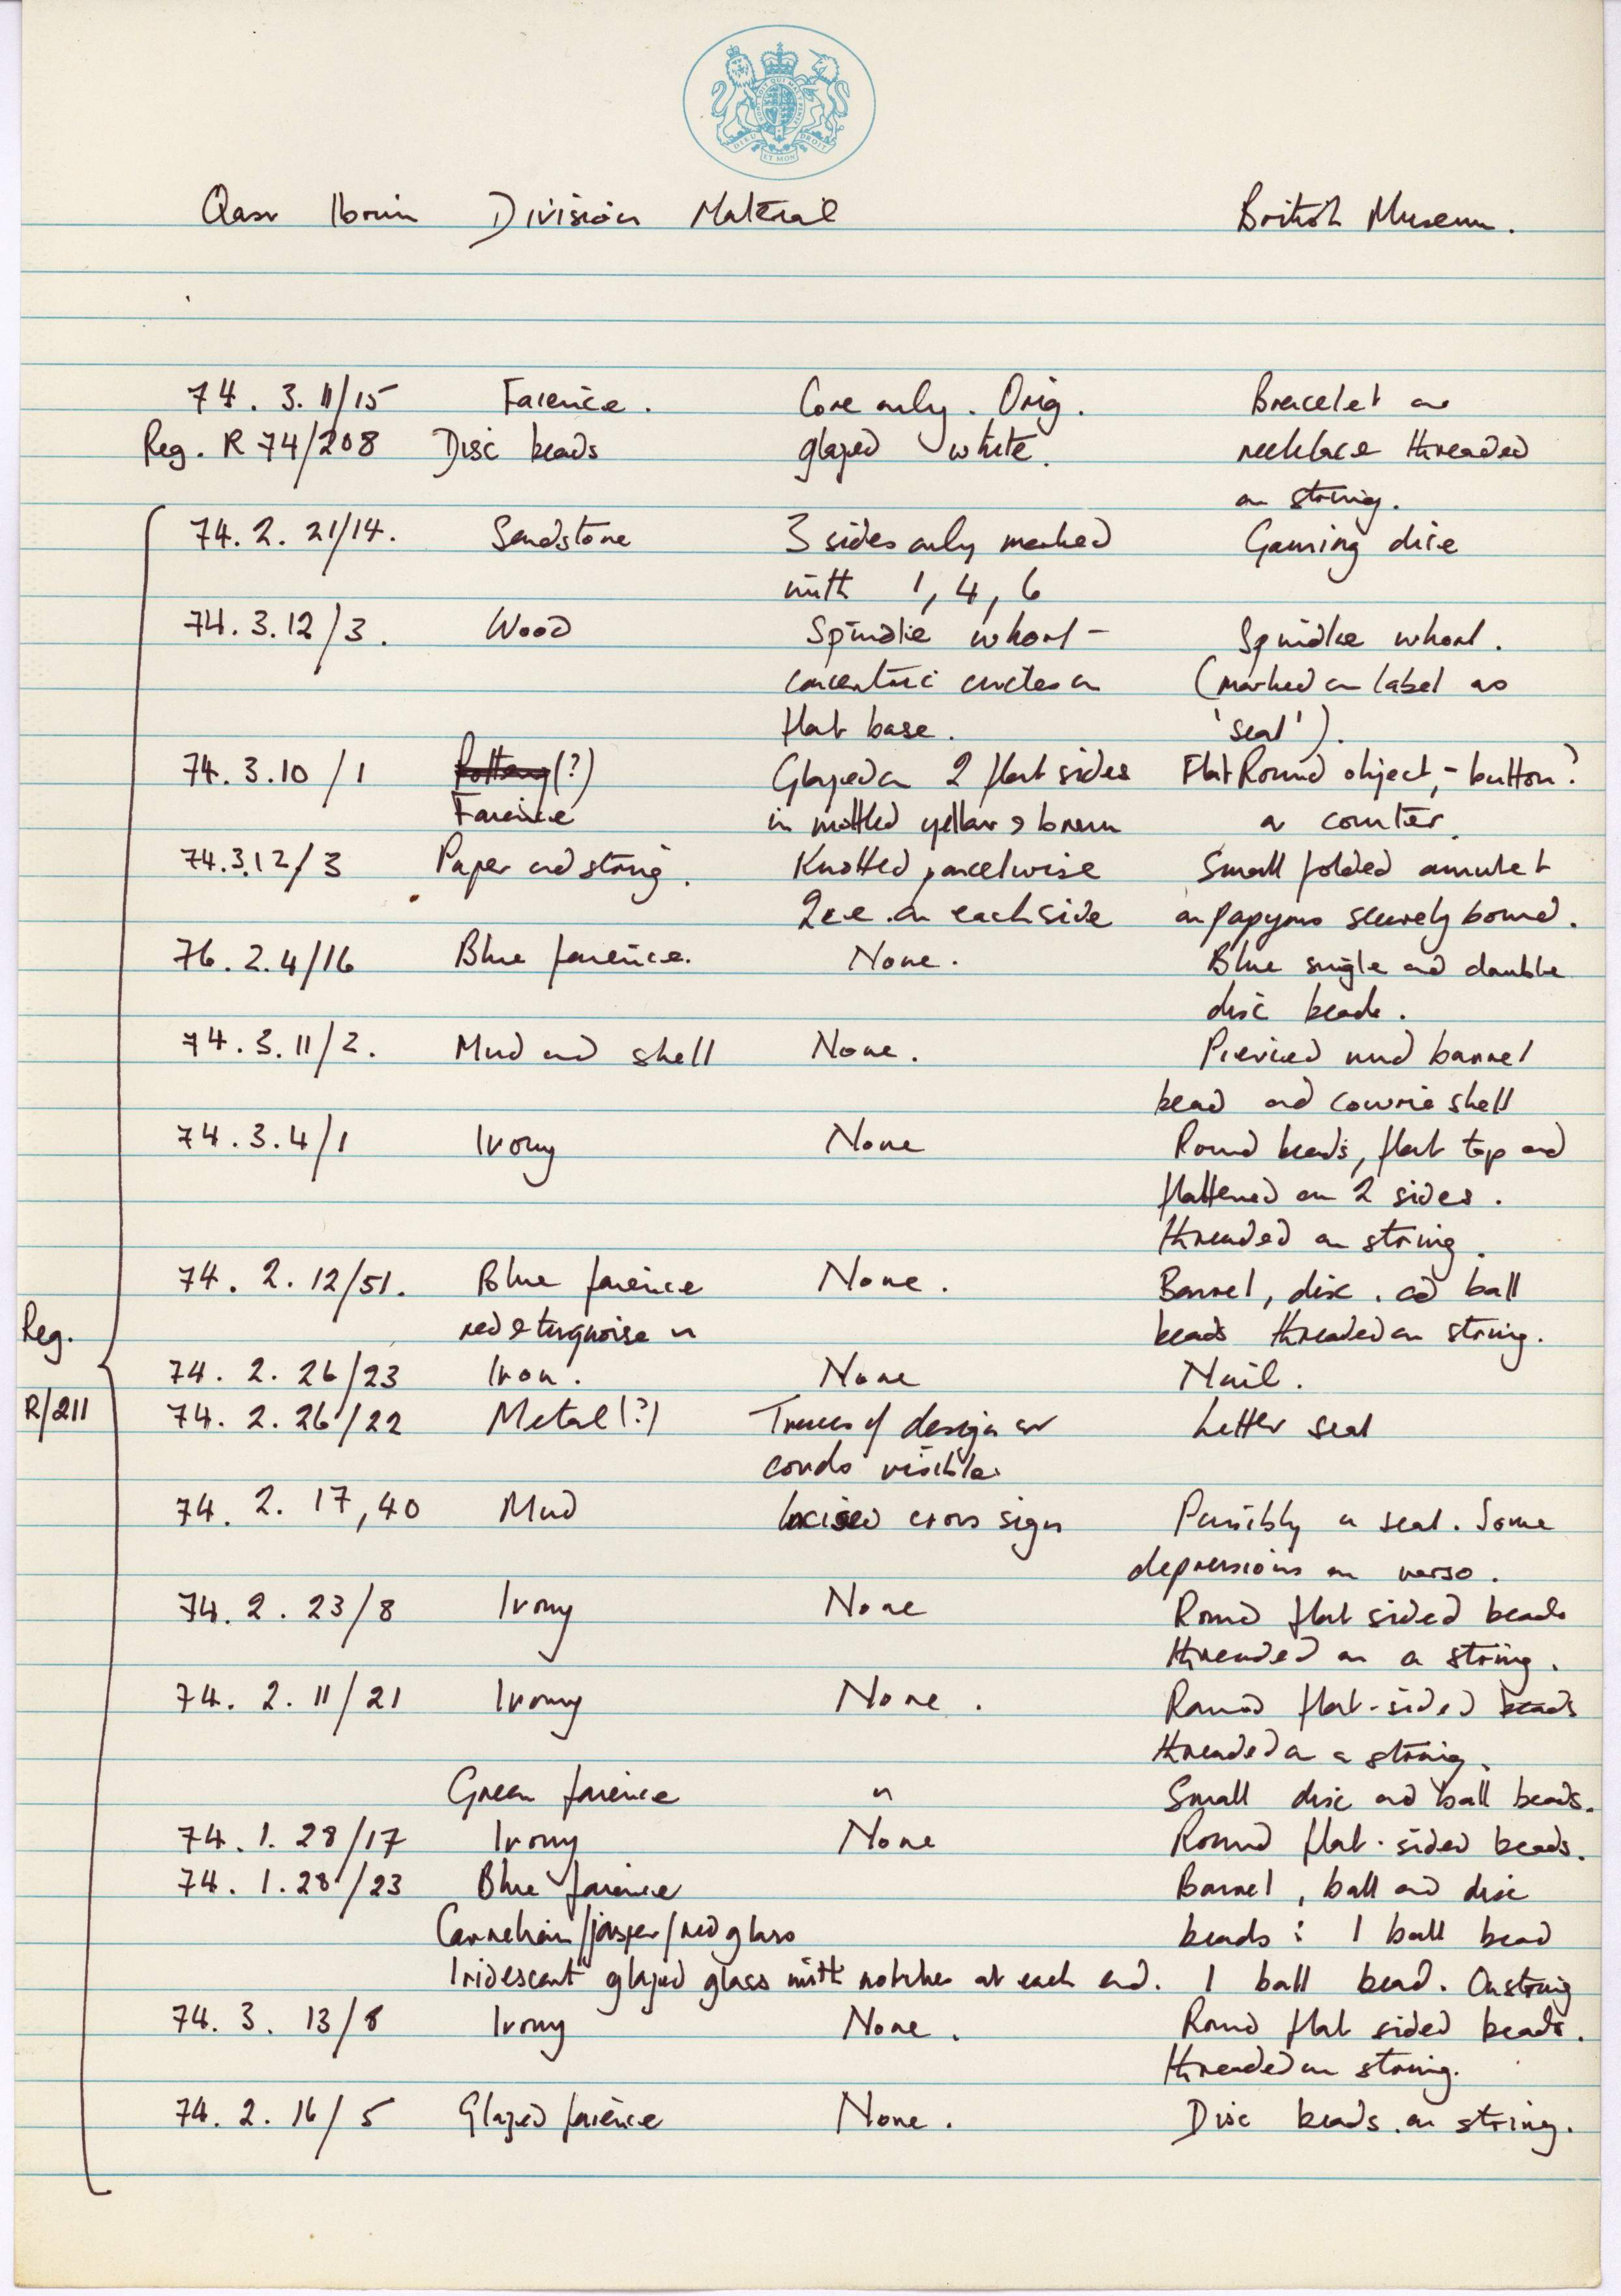 HONI SOIT QUI MAL Y PENSE
DIEU ET MON DROIT
Qasr Ibrim Division Material British Museum.
74. 3. 11/15 Faience. Core only. Orig. Bracelet or
Reg. R 74/208 Disc beads glazed white. necklace threaded
on string.
74. 2. 21/14. Sandstone 3 sides only marked Gaming dice
with 1, 4, 6
74. 3. 12/3. Wood Spindle whorl - Spindle whorl.
concentric circles on (marked on label as
flat base. 'seal').
74. 3. 10/1 Pottery (?) Glazed on 2 flat sides Flat Round object, - button?
Faience in mottled yellow & brown or counter.
74.3.12/3 Paper and string. Knotted parcelwise Small folded amulet
2 c.e. on each side on papyrus securely bound.
76. 2. 4/16 Blue faience. None. Blue single and double
disc beads.
74. 3. 11/2. Mud and shell None. Pierced mud barrel
bead and cowrie shell
74. 3. 4/1 Ivory None Round beads, flat top and
flattened on 2 sides.
threaded on string.
74. 2. 12/51. Blue faience None. Barrel, disc. and ball
Reg. red & turquoise " beads threaded on string.
74. 2. 26/23 Iron. None Nail.
R/211 74. 2. 26/22 Metal (?) Traces of design or Letter seal
cords visible.
74. 2. 17, 40 Mud Incised cross sign Possibly a seal. Some
depressions on verso.
74. 2. 23/8 Ivory None Round flat sided beads
threaded on a string.
74. 2. 11/21 Ivory None. Round flat-sided beads
threaded on a string.
Green faience " Small disc and ball beads.
74. 1. 28/17 Ivory None Round flat-sided beads.
74. 1. 28/23 Blue faience Barrel, ball and disc
Carnelian/jasper/red glass beads: 1 ball bead
Iridescent glazed glass with notches at each end. 1 ball bead. On string
74. 3. 13/8 Ivory None. Round flat sided beads.
threaded on string.
74. 2. 16/5 Glazed faience None. Disc beads. on string.